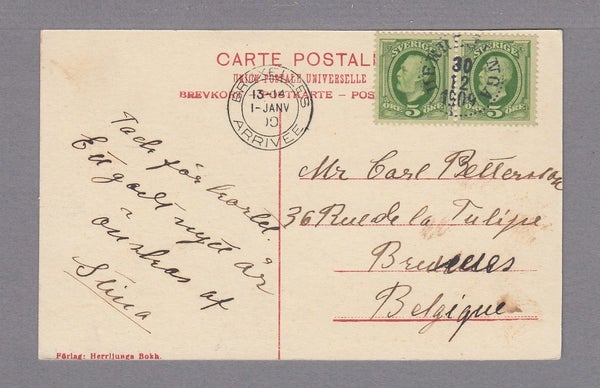 CARTE POSTAL
UNION POSTALE UNIVERSELLE
BREVKORT - POSTKARTE - POS
BRUXELLES
13-14
1-JANV
ARRIVÉE
SVERIGE
ÖRE 5 ÖRE
SVERIGE
ÖRE 5 ÖRE
30
12
Tack för kortet.
Ett godt nytt år
önskas af
Stina
Mr Carl Petterson
36 Rue de la Tulipe
Bruxelles
Belgique
Förlag: Herrljunga Bokh.